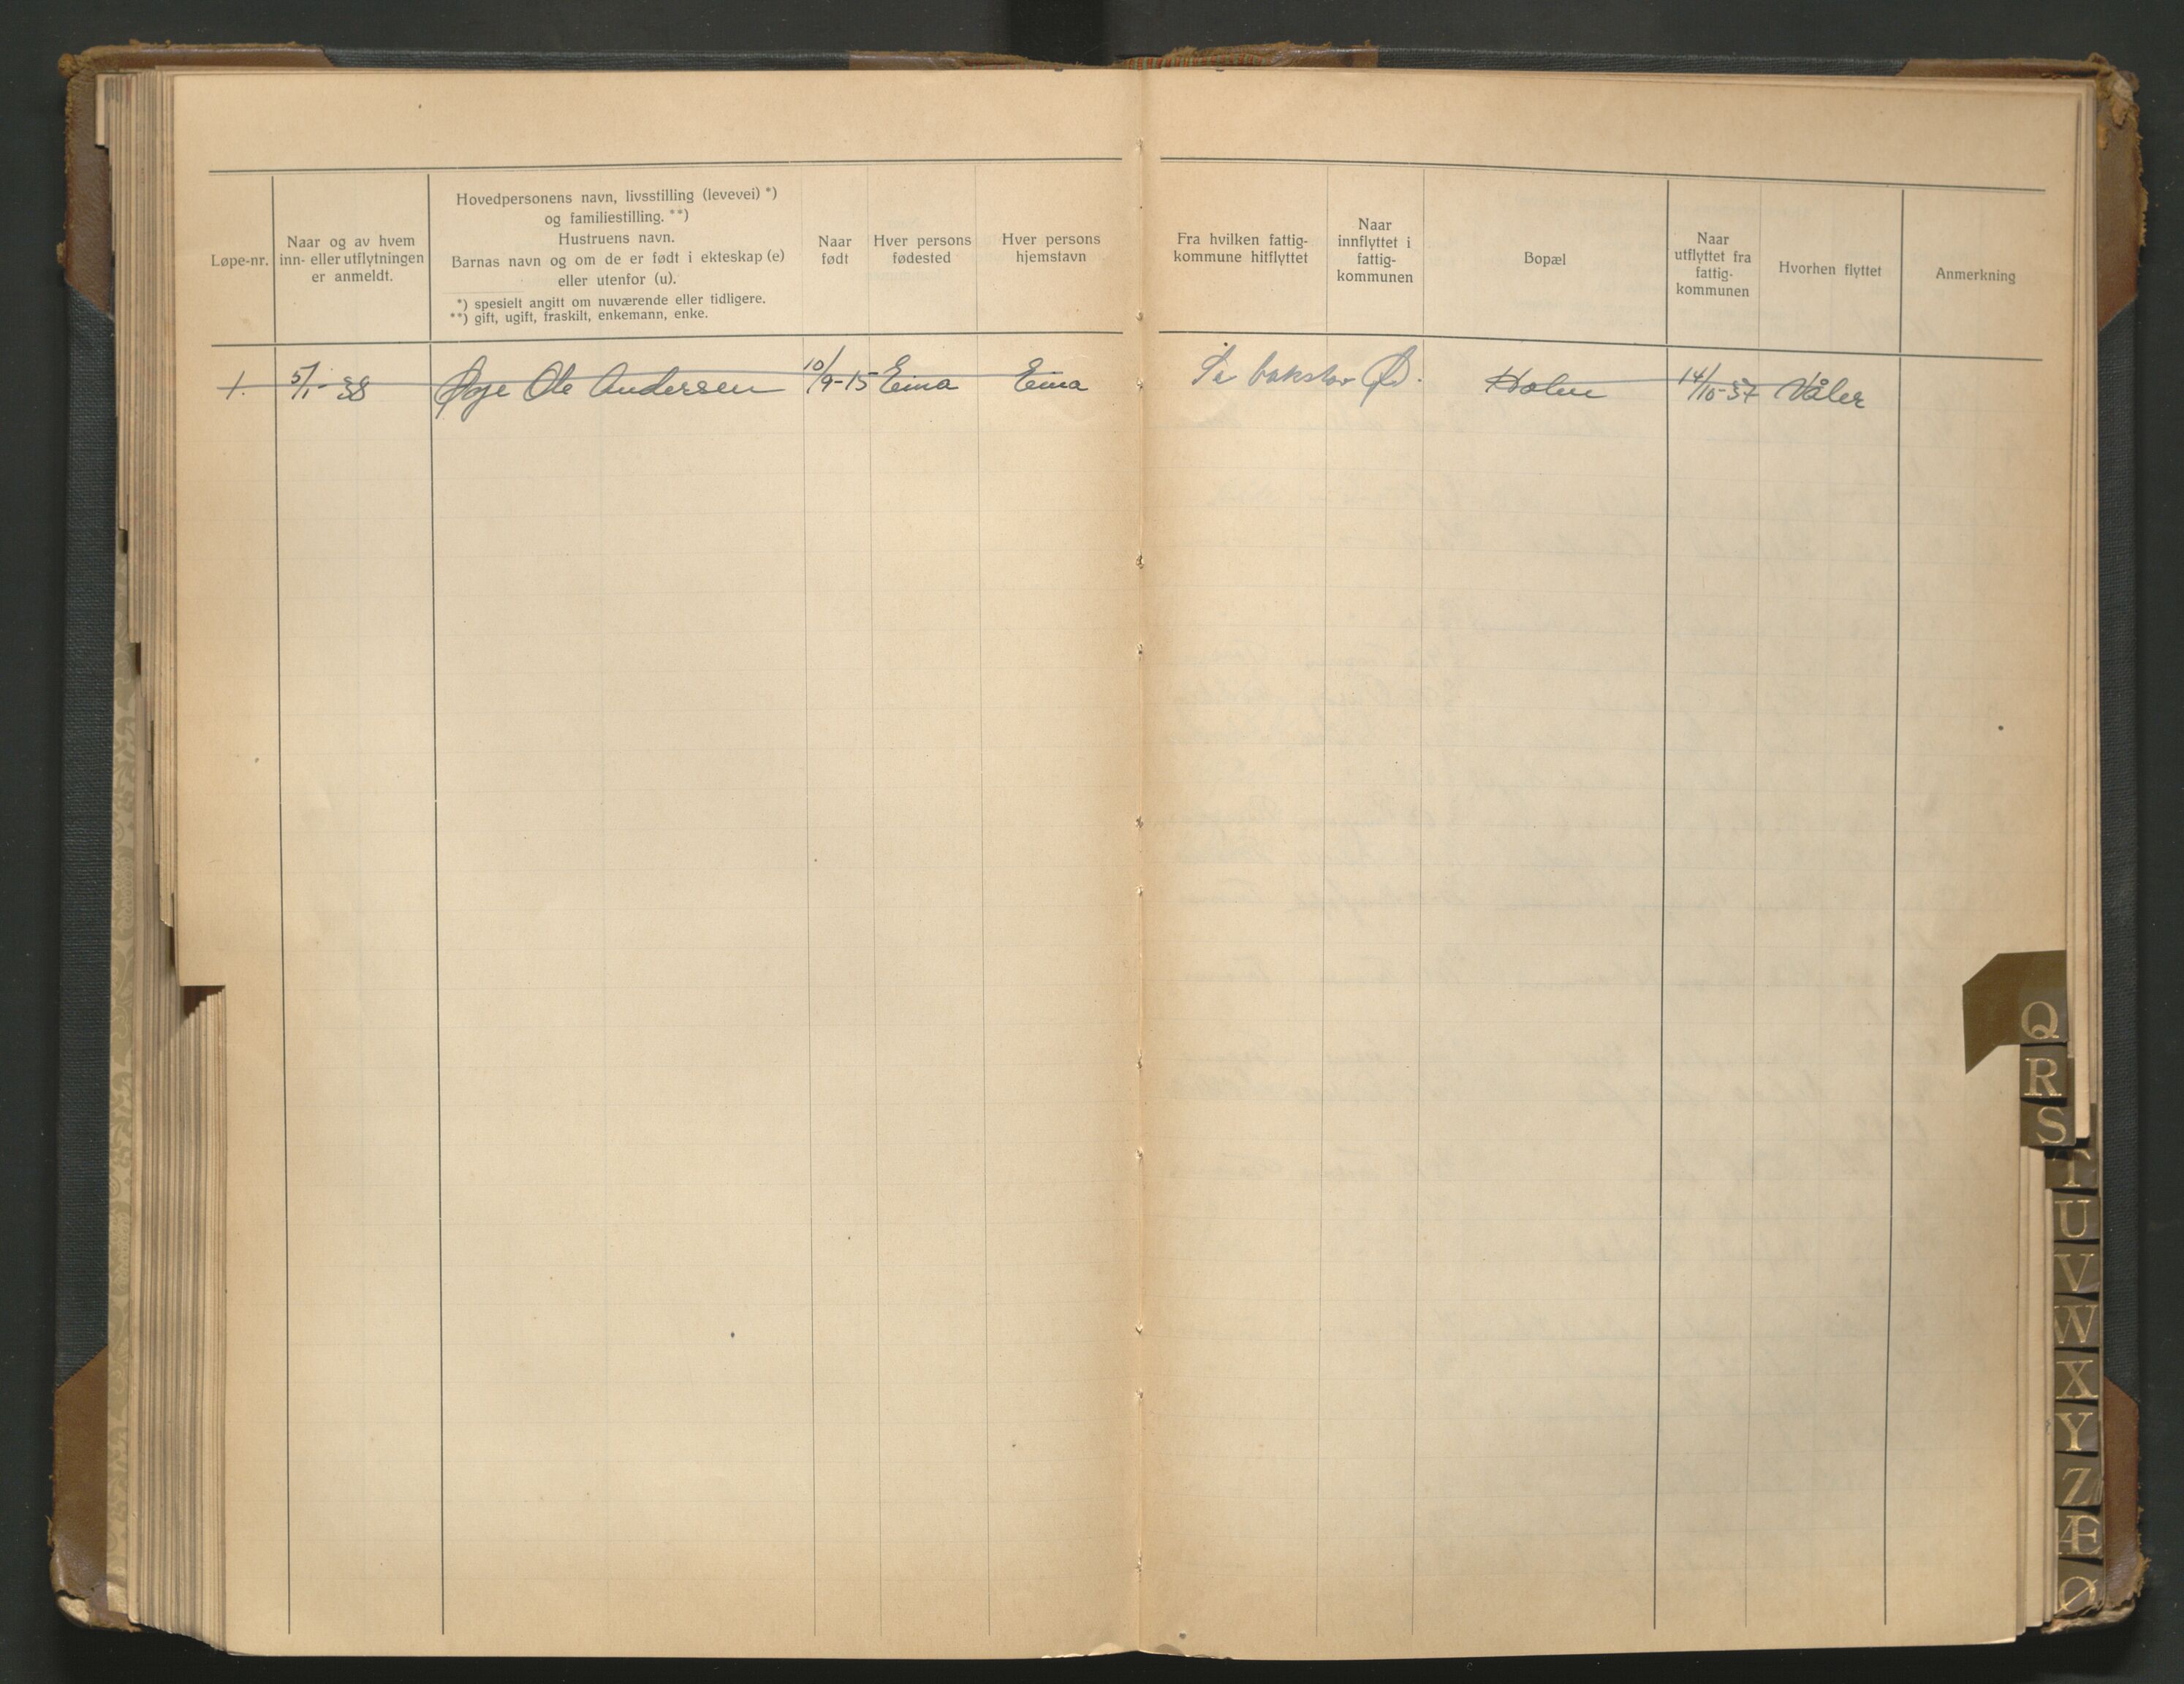 Løpe-nr.
Naar og av hvem
inn- eller utflytningen
er anmeldt.
Hovedpersonens navn, livsstilling (levevei) *)
og familiestilling. **)
Hustruens navn.
Barnas navn og om de er født i ekteskap (e)
eller utenfor (u).
*) spesielt angitt om nuværende eller tidligere.
**) gift, ugift, fraskilt, enkemann, enke.
Naar
født
Hver persons
fødested
Hver persons
hjemstavn
Fra hvilken fattig-
kommune hitflyttet
Naar
innflyttet i
fattig-
kommunen
Bopæl
Naar
utflyttet fra
fattig-
kommunen
Hvorhen flyttet
Anmerkning
1. 5/1-38 Øye Ole Andersen 10/9-15 Eina Eina Se bokstav Ø. Holm 14/10-37 Våler
Q
R
S
T
U
V
W
X
Y
Z
Æ
Ø